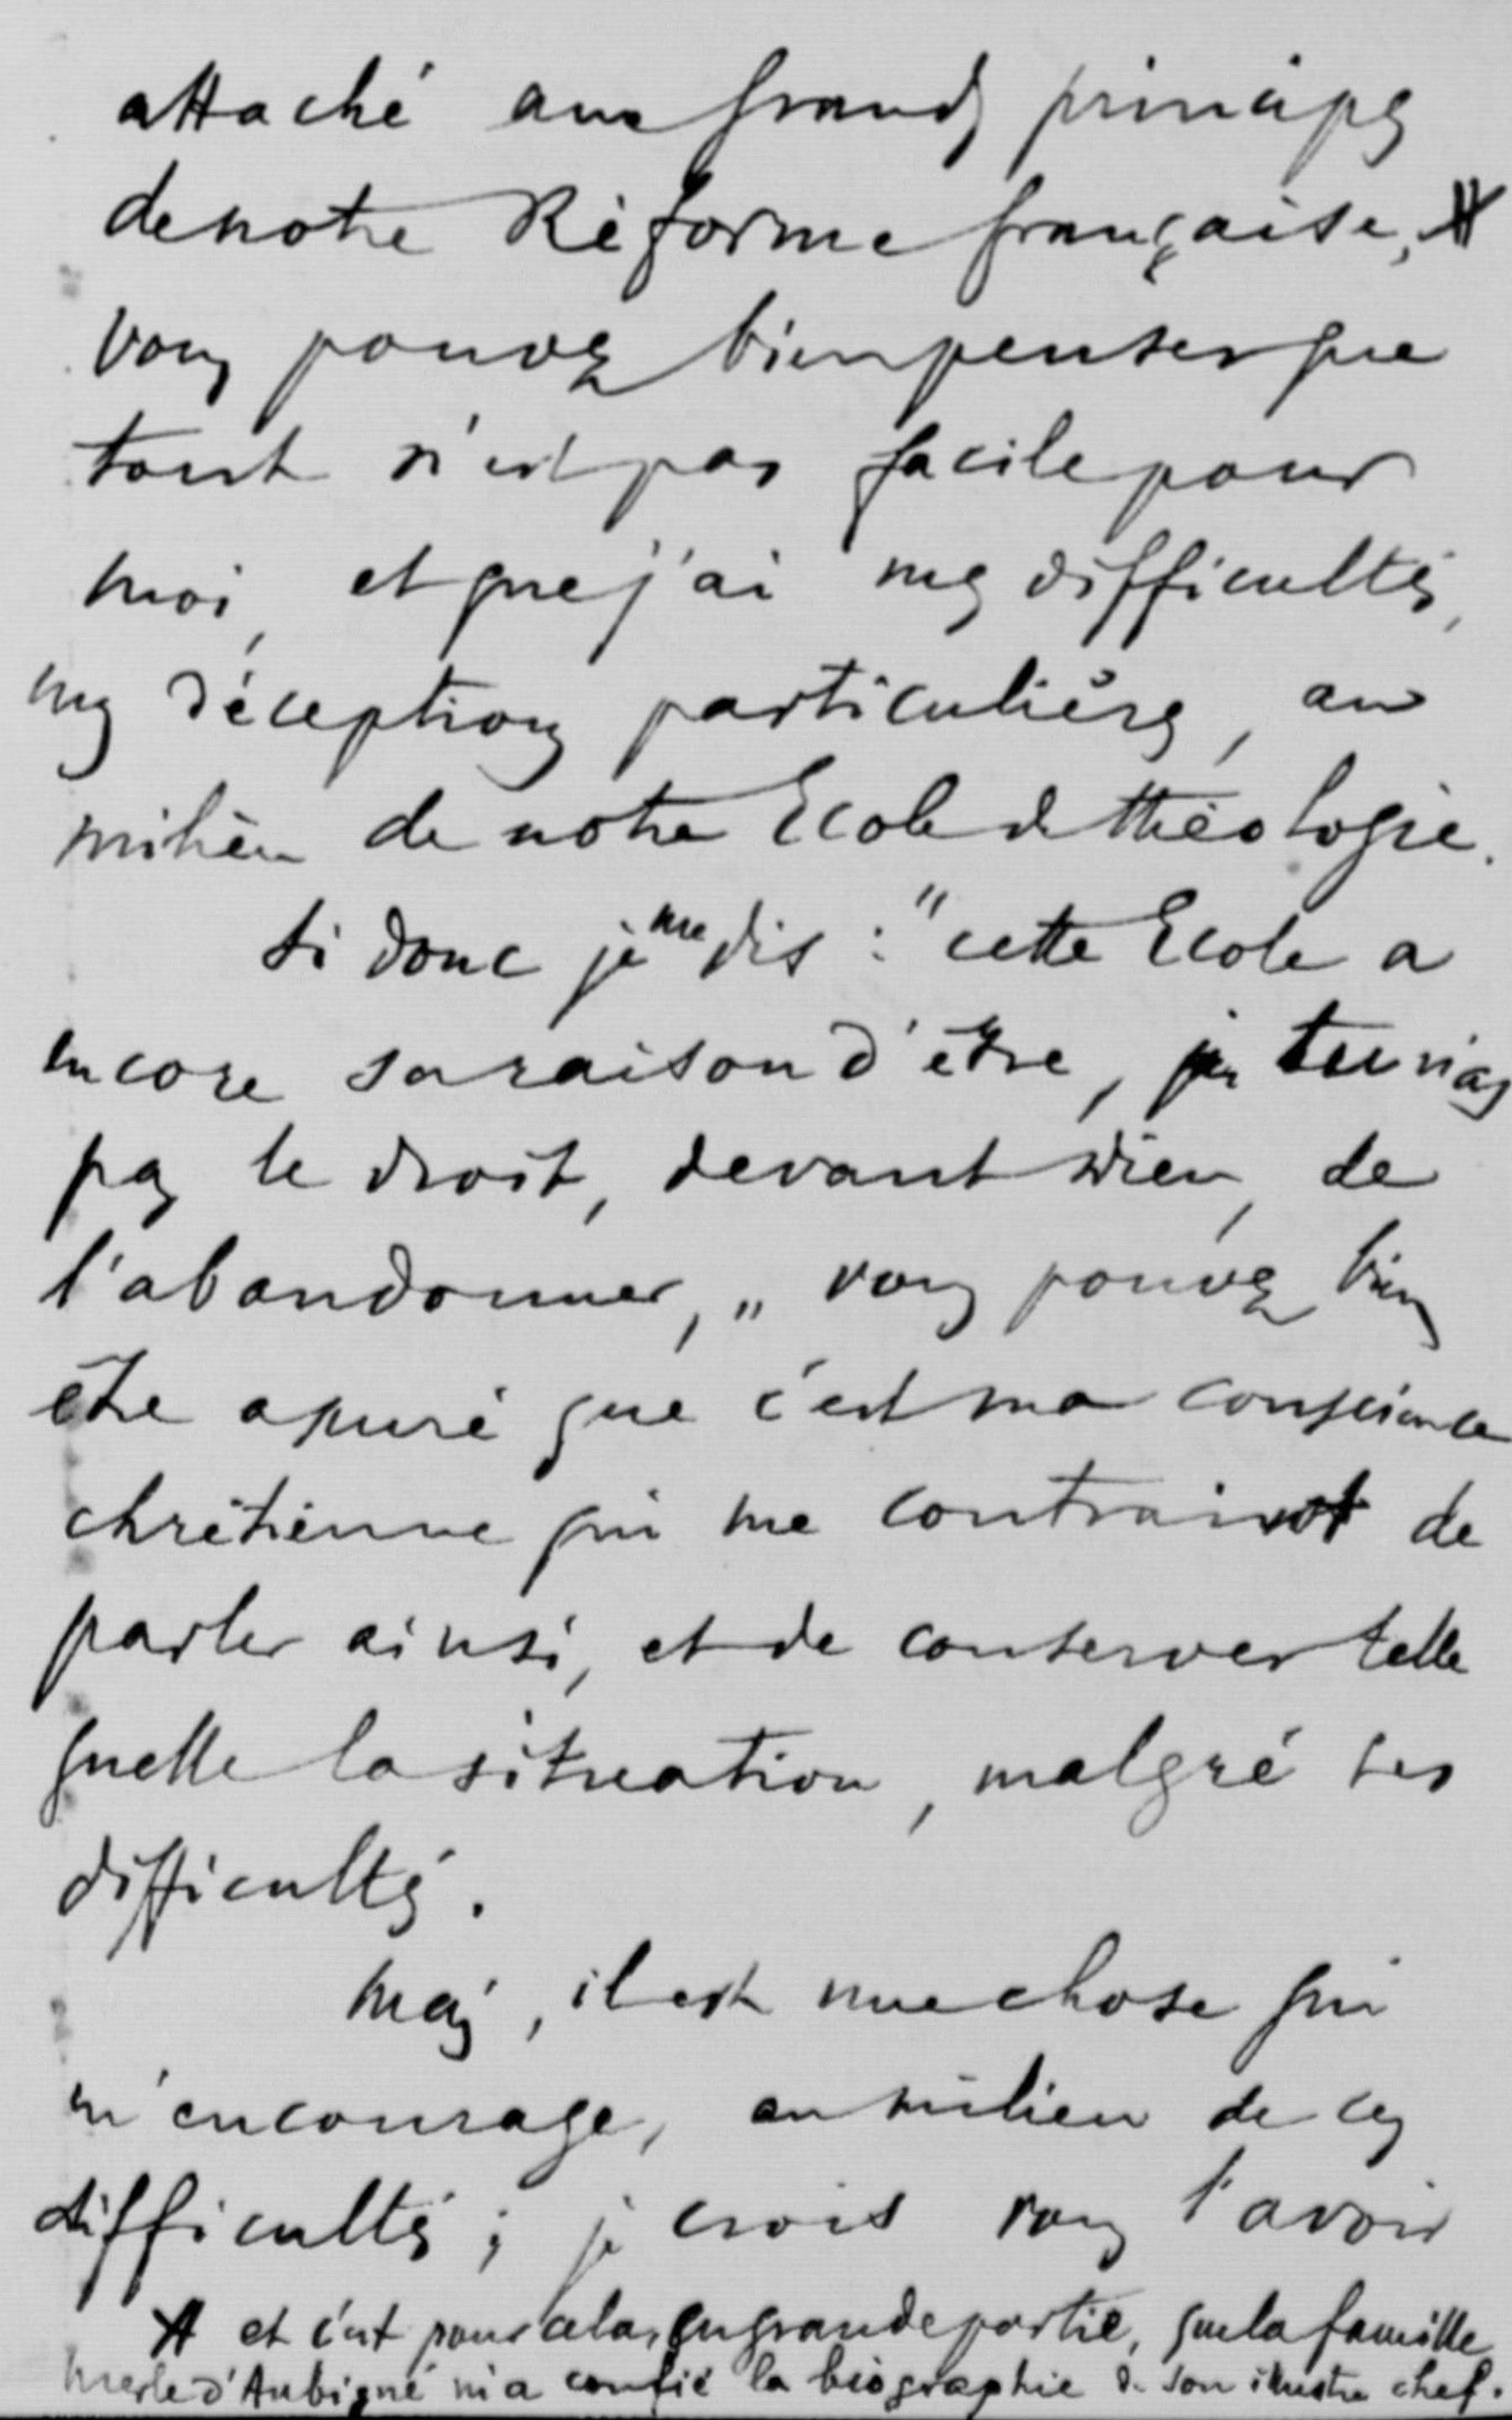 attaché aux grands principes
de notre Réforme française, #
vous pouvez bien penser que
tout n'est pas facile pour
moi, et que j'ai mes difficultés,
mes déceptions particulières, au
milieu de notre Ecole de théologie.
Si donc je me dis : "cette Ecole a
encore sa raison d'être, tu n'as
pas le droit, devant Dieu, de
l'abandonner, " vous pouvez bien
être assuré que c'est ma conscience
chrétienne qui me contraint de
parler ainsi, et de conserver telle
quelle la situation, malgré ses
difficultés.
Mais, il est une chose qui
m'encourage, au milieu de ces
difficultés ; je crois vous l'avoir
# et c'est pour cela, en grande partie, que la famille
Merle d'Aubigné m'a confié la biographie de son illustre chef.